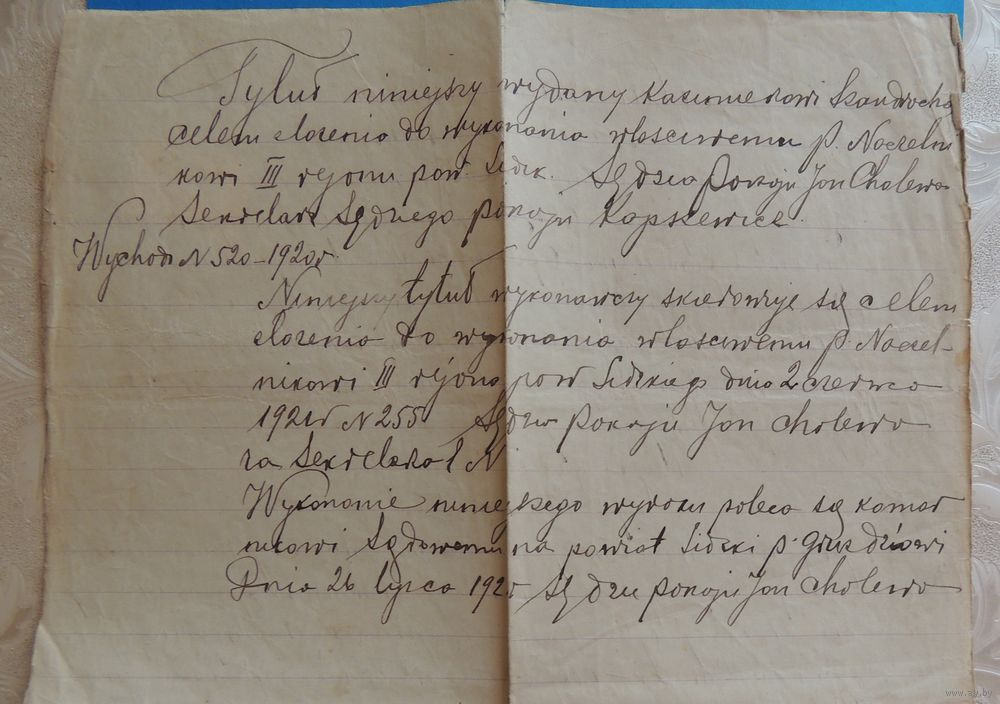 Tytuł niniejszy wydany Kazimierowi Skandrocha
celem złożenia do wykonania własciwemu p. Naczelni
kowi III rejonu pow. Lidzk. Sędzia Pokoju Jan Cholewo
Sekretarz Sędziego pokoju Kopszewicz.
Wychod. N 520 – 1920 r.
Niniejszy tytuł wykonawczy skierowuje się celem
złożenia do wykonania własciwemu p. Naczel-
nikowi III rejonu pow Lidzkiego dnia 2 czerwca
1921 r N 255 Sędzia Pokoju Jan Cholewo
za Sekretarza
Wykonanie niniejszego wyroku poleca się komor
nikowi Sądowemu na powiat Lidzki p.
Dnia 26 lipca 192 Sędzia pokoju Jan Cholewo
www.ay.by